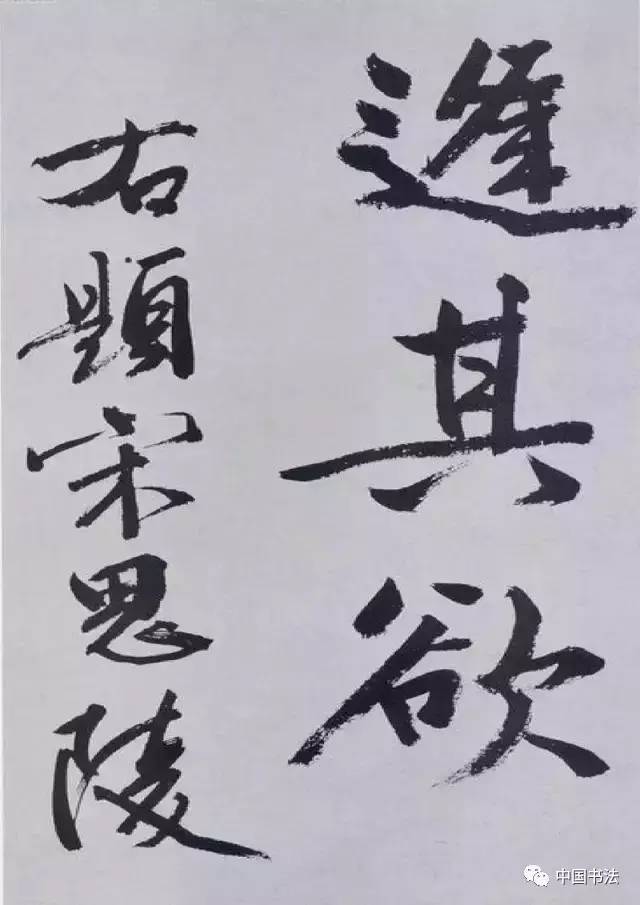 逢其欲
右題宋思陵
中国书法